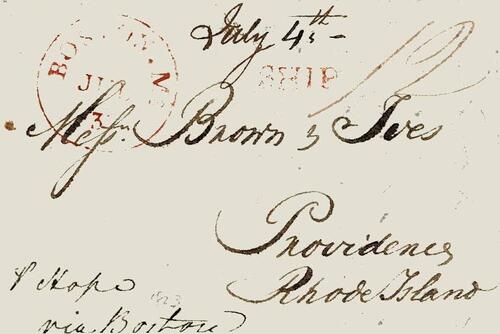 July 4th
BOSTON. MS
JUL
3
SHIP
12
Messrs. Brown & Ives
Providence
Rhode Island
p Hope
1823
via Boston